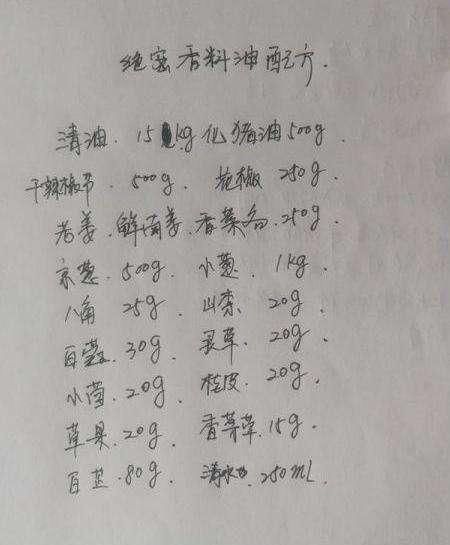 绝密香料油配方.
清油. 15kg 化猪油500g.
干辣椒节. 500g. 花椒 250g.
老姜.鲜南姜.香菜各.250g.
京葱. 500g. 小葱. 1kg.
八角 25g. 山柰 20g.
白蔻. 30g. 灵草. 20g.
小茴. 20g. 桂皮. 20g.
草果. 20g. 香茅草. 15g.
白芷. 80g. 清水 250mL.